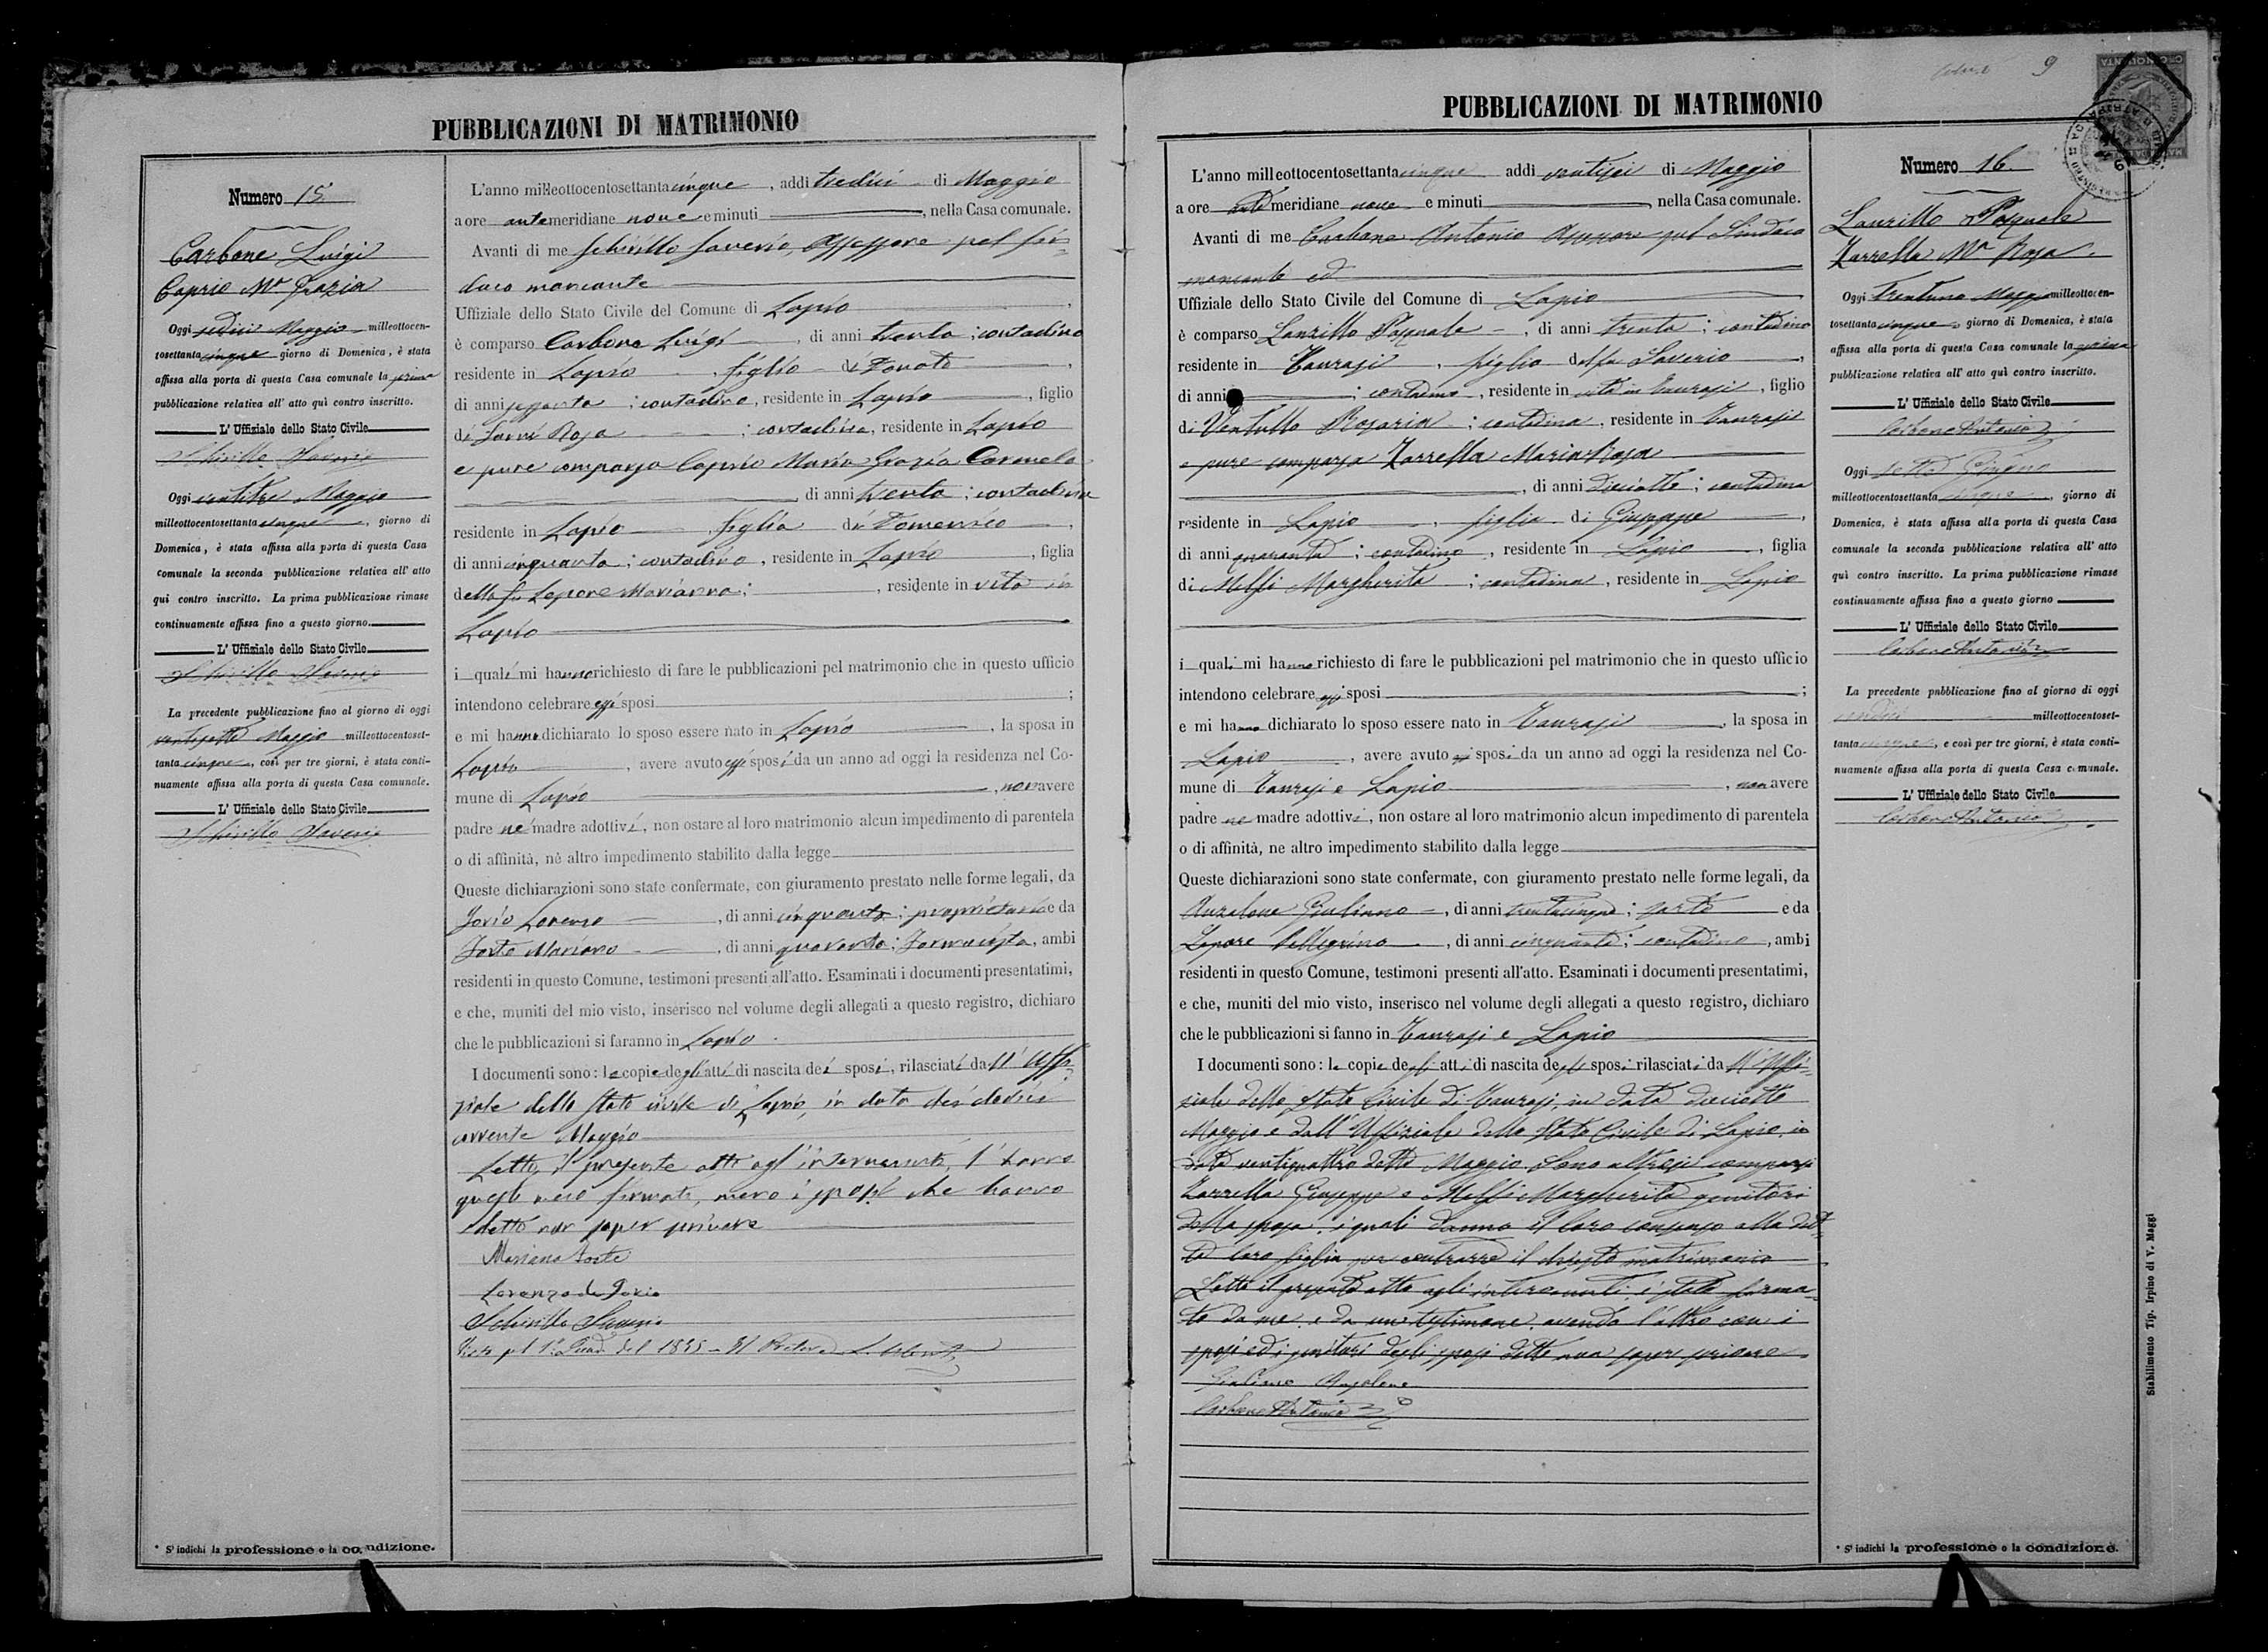 PUBBLICAZIONI DI MATRIMONIO
Numero 15.
Carbone Luigi
Caprio Ma Grazia
Oggi sedici Maggio milleottocen-
tosettantacinque giorno di Domenica, è stata
affissa alla porta di questa Casa comunale la prima
pubblicazione relativa all' atto quì contro inscritto.
L' Uffiziale dello Stato Civile
Schirillo Saverio
Oggi ventitre Maggio
milleottocentosettantacinque, giorno di
Domenica, è stata affissa alla porta di questa Casa
comunale la seconda pubblicazione relativa all' atto
qui contro inscritto. La prima pubblicazione rimase
continuamente affissa fino a questo giorno.
L' Uffiziale dello Stato Civile
Schirillo Saverio
La precedente pubblicazione fino al giorno di oggi
ventisette Maggio milleottocentoset-
tantacinque, così per tre giorni, è stata conti-
nuamente affissa alla porta di questa Casa comunale.
L' Uffiziale dello Stato Civile
Schirillo Saverio
* S' indichi la professione o la condizione.
L'anno milleottocentosettantacinque, addi tredici di Maggio
a ore antemeridiane nove e minuti , nella Casa comunale.
Avanti di me Schirillo Saverio, Assessore pel Sin-
daco mancante
Uffiziale dello Stato Civile del Comune di Lapio,
è comparso Carbone Luigi, di anni trenta; contadino
residente in Lapio, figlio di Donato,
di anni sessanta; contadino, residente in Lapio, figlio
di Rosa; contadina, residente in Lapio
e pure comparsa Caprio Maria Grazia Carmela
, di anni trenta; contadina
residente in Lapio, figlia di Domenico,
di anni cinquanta; contadino, residente in Lapio, figlia
della fu Lepore Marianna; , residente in vita in
Lapio
i quali mi hanno richiesto di fare le pubblicazioni pel matrimonio che in questo ufficio
intendono celebrare essi sposi ;
e mi hanno dichiarato lo sposo essere nato in Lapio, la sposa in
Lapio, avere avuto essi sposi da un anno ad oggi la residenza nel Co-
mune di Lapio, non avere
padre nè madre adottivi, non ostare al loro matrimonio alcun impedimento di parentela
o di affinità, nè altro impedimento stabilito dalla legge
Queste dichiarazioni sono state confermate, con giuramento prestato nelle forme legali, da
Jorio Lorenzo, di anni cinquanta; proprietario e da
Forte Mariano, di anni quaranta; farmacista, ambi
residenti in questo Comune, testimoni presenti all'atto. Esaminati i documenti presentatimi,
e che, muniti del mio visto, inserisco nel volume degli allegati a questo registro, dichiaro
che le pubblicazioni si faranno in Lapio
I documenti sono: le copie degli atti di nascita dei sposi, rilasciati da ll' Uffi-
ziale dello Stato civile di Lapio, in data dei dodici
corrente Maggio
Letto il presente atto agl'intervenuti, l'hanno
questi meco firmato, meno i sposi che hanno
detto non saper scrivere
Mariano Forte
Lorenzo de Jorio
Schirillo Saverio
Visto pel 1° Quad. del 1875 - Il Pretore
PUBBLICAZIONI DI MATRIMONIO
9
L'anno milleottocentosettantacinque addì ventisei di Maggio
a ore antimeridiane nove e minuti , nella Casa comunale.
Avanti di me Carbone Antonio Assessore pel Sindaco
mancante ed
Uffiziale dello Stato Civile del Comune di Lapio
è comparso Lanzillo Pasquale, di anni trenta; contadino
residente in Taurasi, figlio del fu Saverio,
di anni ; contadino, residente in vita in Taurasi, figlio
di Rosaria; contadina, residente in Taurasi
e pure comparsa Zarrella Maria Rosa
, di anni diciotto; contadina
residente in Lapio, figlia di Giuseppe,
di anni quaranta; contadino, residente in Lapio, figlia
di Melfi Margherita; contadina, residente in Lapio
i quali mi hanno richiesto di fare le pubblicazioni pel matrimonio che in questo ufficio
intendono celebrare essi sposi ;
e mi hanno dichiarato lo sposo essere nato in Taurasi, la sposa in
Lapio, avere avuto essi sposi da un anno ad oggi la residenza nel Co-
mune di Taurasi e Lapio, non avere
padre nè madre adottivi, non ostare al loro matrimonio alcun impedimento di parentela
o di affinità, ne altro impedimento stabilito dalla legge
Queste dichiarazioni sono state confermate, con giuramento prestato nelle forme legali, da
Anzalone Giuliano, di anni trentacinque; sarto e da
Lepore Pellegrino, di anni cinquanta; contadino, ambi
residenti in questo Comune, testimoni presenti all'atto. Esaminati i documenti presentatimi,
e che, muniti del mio visto, inserisco nel volume degli allegati a questo registro, dichiaro
che le pubblicazioni si fanno in Taurasi e Lapio
I documenti sono: le copie degli atti di nascita degli sposi rilasciati da ll'Uffi-
ziale dello Stato Civile di Taurasi, in data diciotto
Maggio e dall'Uffiziale dello Stato Civile di Lapio, in
data ventiquattro detto Maggio. Sono altresi comparsi
Zarrella Giuseppe e Melfi Margherita genitori
della sposa, i quali danno il loro consenso alla det-
ta loro figlia per contrarre il chiesto matrimonio
Letto il presente atto agli intervenuti, è stato firma-
to da me e da un testimone, avendo l'altro con i
sposi ed i genitori degli sposi detto non sapere scrivere
Giuliano Anzalone
Carbone Antonio
Numero 16.
Lanzillo Pasquale
Zarrella Ma Rosa.
Oggi Trentuno Maggio milleottocen-
tosettantacinque giorno di Domenica, è stata
affissa alla porta di questa Casa comunale la prima
pubblicazione relativa all' atto quì contro inscritto.
L' Uffiziale dello Stato Civile
Carbone Antonio
Oggi sette Giugno
milleottocentosettanta cinque, giorno di
Domenica, è stata affissa alla porta di questa Casa
comunale la seconda pubblicazione relativa all' atto
quì contro inscritto. La prima pubblicazione rimase
continuamente affissa fino a questo giorno
L' Uffiziale dello Stato Civile
Carbone Antonio
La precedente pubblicazione fino al giorno di oggi
milleottocentoset-
tanta cinque, e così per tre giorni, è stata conti-
nuamente affissa alla porta di questa Casa comunale.
L' Uffiziale dello Stato Civile
Carbone Antonio
* S' indichi la professione o la condizione.
Stabilimento Tip. Irpino di V. Maggi